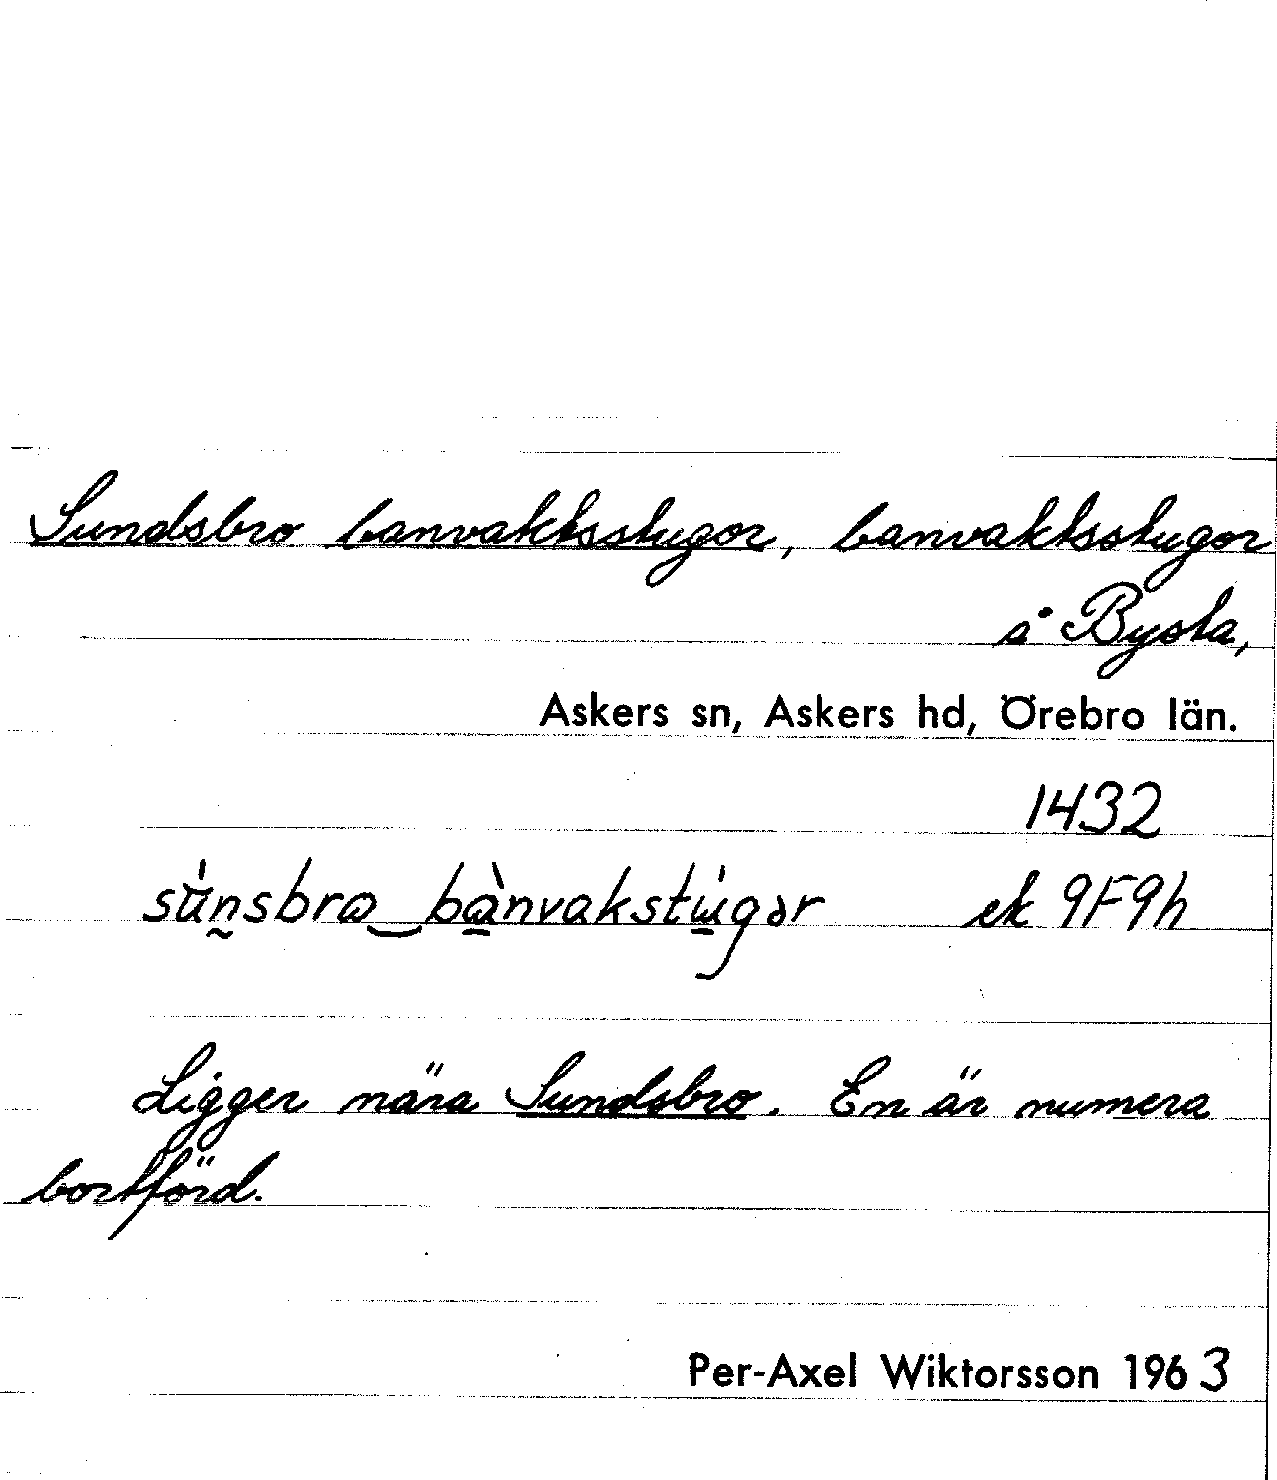 Sundsbro banvaktsstugor, banvaktsstugor
å Bysta,
Askers sn, Askers hd, Örebro län.
1432
sùnsbrɷ bànvakstùgər ek 9F9h
Ligger nära Sundsbro. En är numera
bortförd.
Per-Axel Wiktorsson 1963